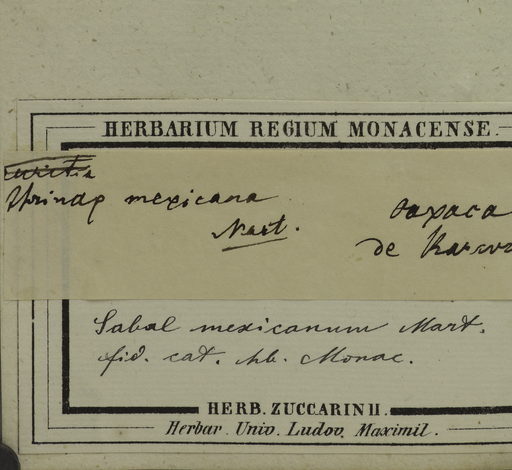 HERBARIUM REGIUM MONACENSE.
Thrinax mexicana
Mart.
Oaxaca
de Karw
Sabal mexicanum Mart.
fid. cat. hb. Monac.
HERB. ZUCCARINII.
Herbar. Univ. Ludov. Maximil.